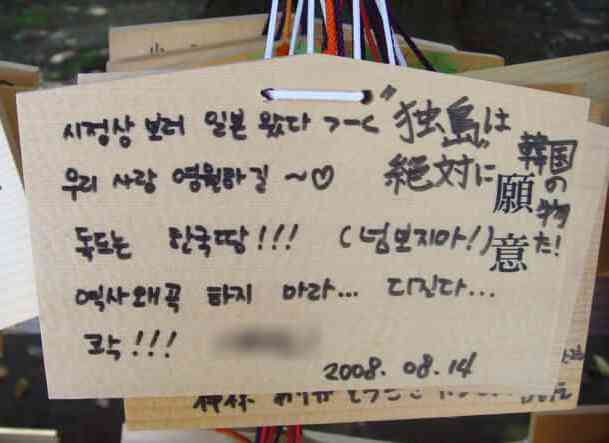 시정상 보러 일본 왔다 >-<
우리 사랑 영원하길 ~♡
독도는 한국땅!!! (넘보지마!)
역사왜곡 하지 마라... 디진다...
콱!!!
2008. 08. 14
"独島"は
絶対に
韓国の物だ!
願意
神様